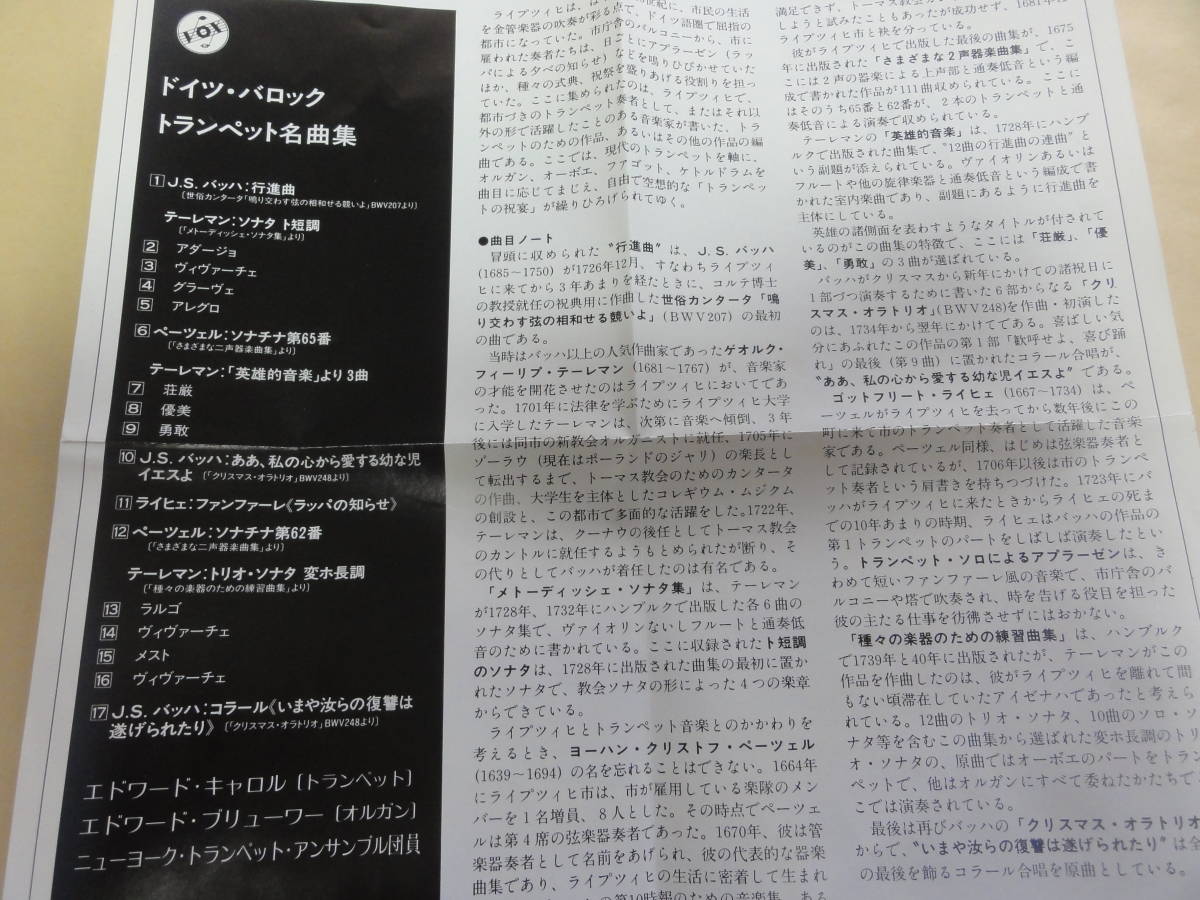 VOX
ドイツ・バロック
トランペット名曲集
1 J.S. バッハ:行進曲
〔世俗カンタータ「鳴り交わす弦の相和せる競いよ」BWV207より〕
テーレマン:ソナタ ト短調
〔「メトーディッシェ・ソナタ集」より〕
2 アダージョ
3 ヴィヴァーチェ
4 グラーヴェ
5 アレグロ
6 ペーツェル:ソナチナ第65番
〔「さまざまな二声器楽曲集」より〕
テーレマン:「英雄的音楽」より3曲
7 荘厳
8 優美
9 勇敢
10 J.S. バッハ:ああ、私の心から愛する幼な児
イエスよ〔「クリスマス・オラトリオ」BWV248より〕
11 ライヒェ:ファンファーレ《ラッパの知らせ》
12 ペーツェル:ソナチナ第62番
〔「さまざまな二声器楽曲集」より〕
テーレマン:トリオ・ソナタ 変ホ長調
〔「種々の楽器のための練習曲集」より〕
13 ラルゴ
14 ヴィヴァーチェ
15 メスト
16 ヴィヴァーチェ
17 J.S. バッハ:コラール《いまや汝らの復讐は
遂げられたり》〔「クリスマス・オラトリオ」BWV248より〕
エドワード・キャロル〔トランペット〕
エドワード・ブリューワー〔オルガン〕
ニューヨーク・トランペット・アンサンブル団員
世紀に、市民の生活
を金管楽器の吹奏が彩る点で、ドイツ語圏で屈指の
都市になっていた。市庁舎のバルコニーから、市に
雇われた奏者たちは、日ごとにアブラーゼン(ラッ
パによる夕べの知らせ)などを鳴りひびかせていた
ほか、種々の式典、祝祭を盛りあげる役割りを担っ
ていた。ここに集められたのは、ライプツィヒで、
都市づきのトランペット奏者として、またはそれ以
外の形で活躍したことのある音楽家が書いた、トラ
ンペットのための作品、あるいはその他の作品の編
曲である。ここでは、現代のトランペットを軸に、
オルガン、オーボエ、ファゴット、ケトルドラムを
曲目に応じてまじえ、自由で空想的な「トランペッ
トの祝宴」が繰りひろげられてゆく。
●曲目ノート
冒頭に収められた“行進曲”は、J.S. バッハ
(1685~1750)が1726年12月、すなわちライプツィ
ヒに来てから3年あまりを経たときに、コルテ博士
の教授就任の祝典用に作曲した世俗カンタータ「鳴
り交わす弦の相和せる競いよ」(BWV207)の最初
の曲である。
当時はバッハ以上の人気作曲家であったゲオルク・
フィーリプ・テーレマン(1681~1767)が、音楽家
の才能を開花させたのはライプツィヒにおいてであ
った。1701年に法律を学ぶためにライプツィヒ大学
に入学したテーレマンは、次第に音楽へ傾倒、3年
後には同市の新教会オルガニストに就任、1705年に
ゾーラウ(現在はポーランドのジャリ)の楽長とし
て転出するまで、トーマス教会のためのカンタータ
の作曲、大学生を主体としたコレギウム・ムジクム
の創設と、この都市で多面的な活躍をした。1722年、
テーレマンは、クーナウの後任としてトーマス教会
のカントルに就任するようもとめられたが断り、そ
の代りとしてバッハが着任したのは有名である。
「メトーディッシェ・ソナタ集」は、テーレマン
が1728年、1732年にハンブルクで出版した各6曲の
ソナタ集で、ヴァイオリンないしフルートと通奏低
音のために書かれている。ここに収録されたト短調
のソナタは、1728年に出版された曲集の最初に置か
れたソナタで、教会ソナタの形によった4つの楽章
からできている。
ライプツィヒとトランペット音楽とのかかわりを
考えるとき、ヨーハン・クリストフ・ペーツェル
(1639~1694)の名を忘れることはできない。1664年
にライプツィヒ市は、市が雇用している楽隊のメン
バーを1名増員、8人とした。その時点でペーツェ
ルは第4席の弦楽器奏者であった。1670年、彼は管
楽器奏者として名前をあげられ、彼の代表的な器楽
曲集であり、ライプツィヒの生活に密着して生まれ
の第10時報のための音楽集、ある
満足できず、トーマス教会カン
しようと試みたこともあったが成功せず、1681年に
ライプツィヒ市と袂を分っている。
彼がライプツィヒで出版した最後の曲集が、1675
年に出版された「さまざまな2声器楽曲集」で、こ
こには2声の器楽による上声部と通奏低音という編
成で書かれた作品が111曲収められている。ここに
はそのうち65番と62番が、2本のトランペットと通
奏低音による演奏で収められている。
テーレマンの「英雄的音楽」は、1728年にハンブ
ルクで出版された曲集で、“12曲の行進曲の連曲”と
いう副題が添えられている。ヴァイオリンあるいは
フルートや他の旋律楽器と通奏低音という編成で書
かれた室内楽曲であり、副題にあるように行進曲を
主体にしている。
英雄の諸側面を表わすようなタイトルが付されて
いるのがこの曲集の特徴で、ここには「荘厳」、「優
美」、「勇敢」の3曲が選ばれている。
バッハがクリスマスから新年にかけての諸祝日に
1部づつ演奏するために書いた6部からなる「クリ
スマス・オラトリオ」(BWV248)を作曲・初演した
のは、1734年から翌年にかけてである。喜ばしい気
分にあふれたこの作品の第1部「歓呼せよ、喜び踊
れ」の最後(第9曲)に置かれたコラール合唱が、
“ああ、私の心から愛する幼な児イエスよ”である。
ゴットフリート・ライヒェ(1667~1734)は、ペ
ーツェルがライプツィヒを去ってから数年後にこの
町に来て市のトランペット奏者として活躍した音楽
家である。ペーツェル同様、はじめは弦楽器奏者と
して記録されているが、1706年以後は市のトランペ
ット奏者という肩書きを持ちつづけた。1723年にバ
ッハがライプツィヒに来たときからライヒェの死ま
での10年あまりの時期、ライヒェはバッハの作品の
第1トランペットのパートをしばしば演奏したとい
う。トランペット・ソロによるアブラーゼンは、き
わめて短いファンファーレ風の音楽で、市庁舎のバ
ルコニーや塔で吹奏され、時を告げる役目を担った
彼の主たる仕事を彷彿させずにはおかない。
「種々の楽器のための練習曲集」は、ハンブルク
で1739年と40年に出版されたが、テーレマンがこの
作品を作曲したのは、彼がライプツィヒを離れて間
もない頃滞在していたアイゼナハであったと考えら
れている。12曲のトリオ・ソナタ、10曲のソロ・ソ
ナタ等を含むこの曲集から選ばれた変ホ長調のトリ
オ・ソナタの、原曲ではオーボエのパートをトラン
ペットで、他はオルガンにすべて委ねたかたちでこ
こでは演奏されている。
最後は再びバッハの「クリスマス・オラトリオ
からで、“いまや汝らの復讐は遂げられたり”は全
の最後を飾るコラール合唱を原曲としている。